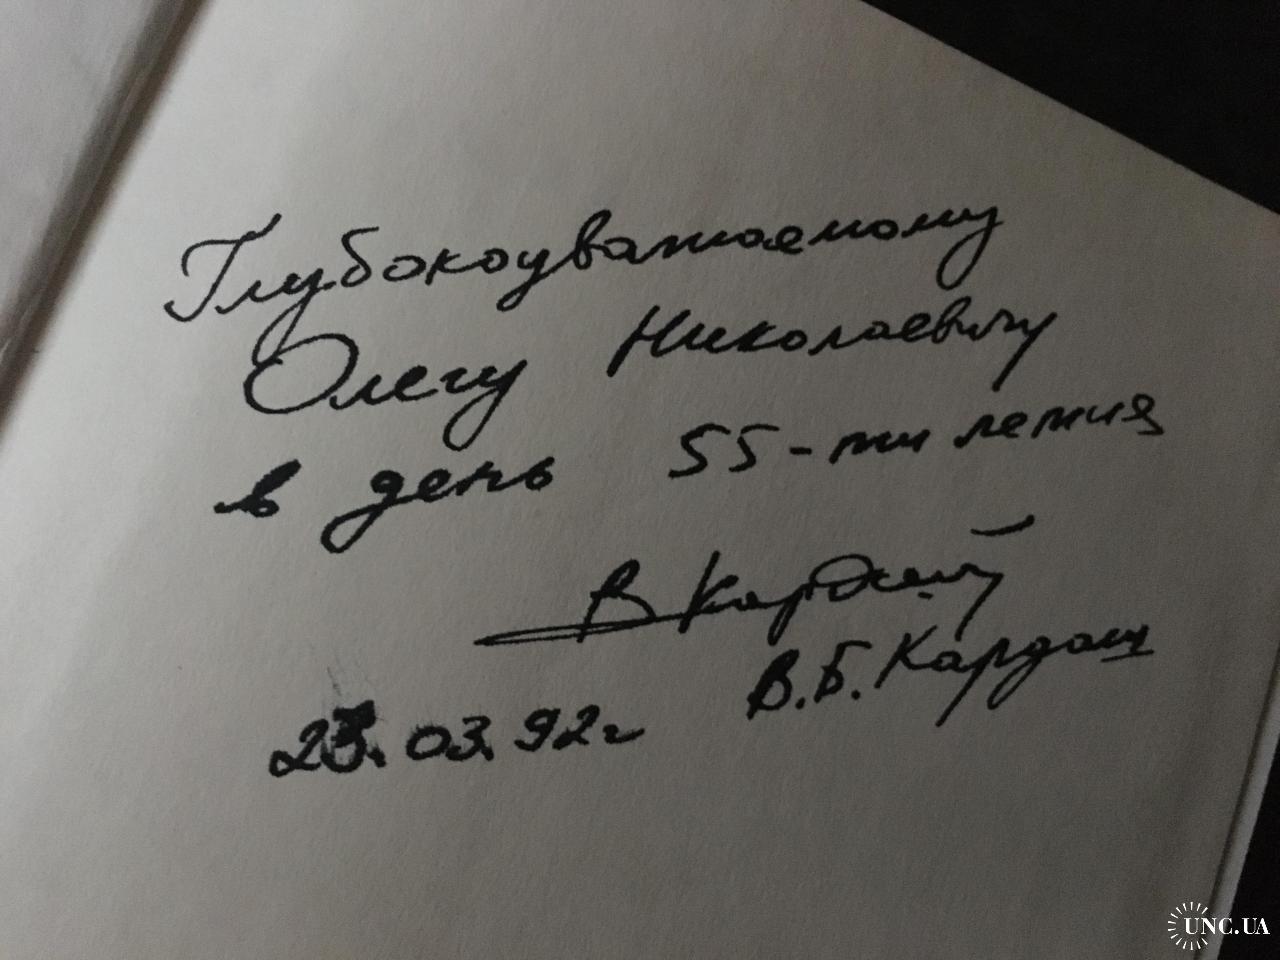 Глубокоуважаемому
Олегу Николаевичу
в день 55-ти летия
В Кардаш
В.Б. Кардаш
23.03.92г
UNC.UA